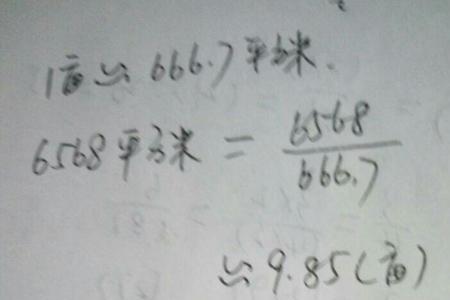 1亩≈666.7平方米.
6568平方米=6568/666.7
≈9.85(亩)